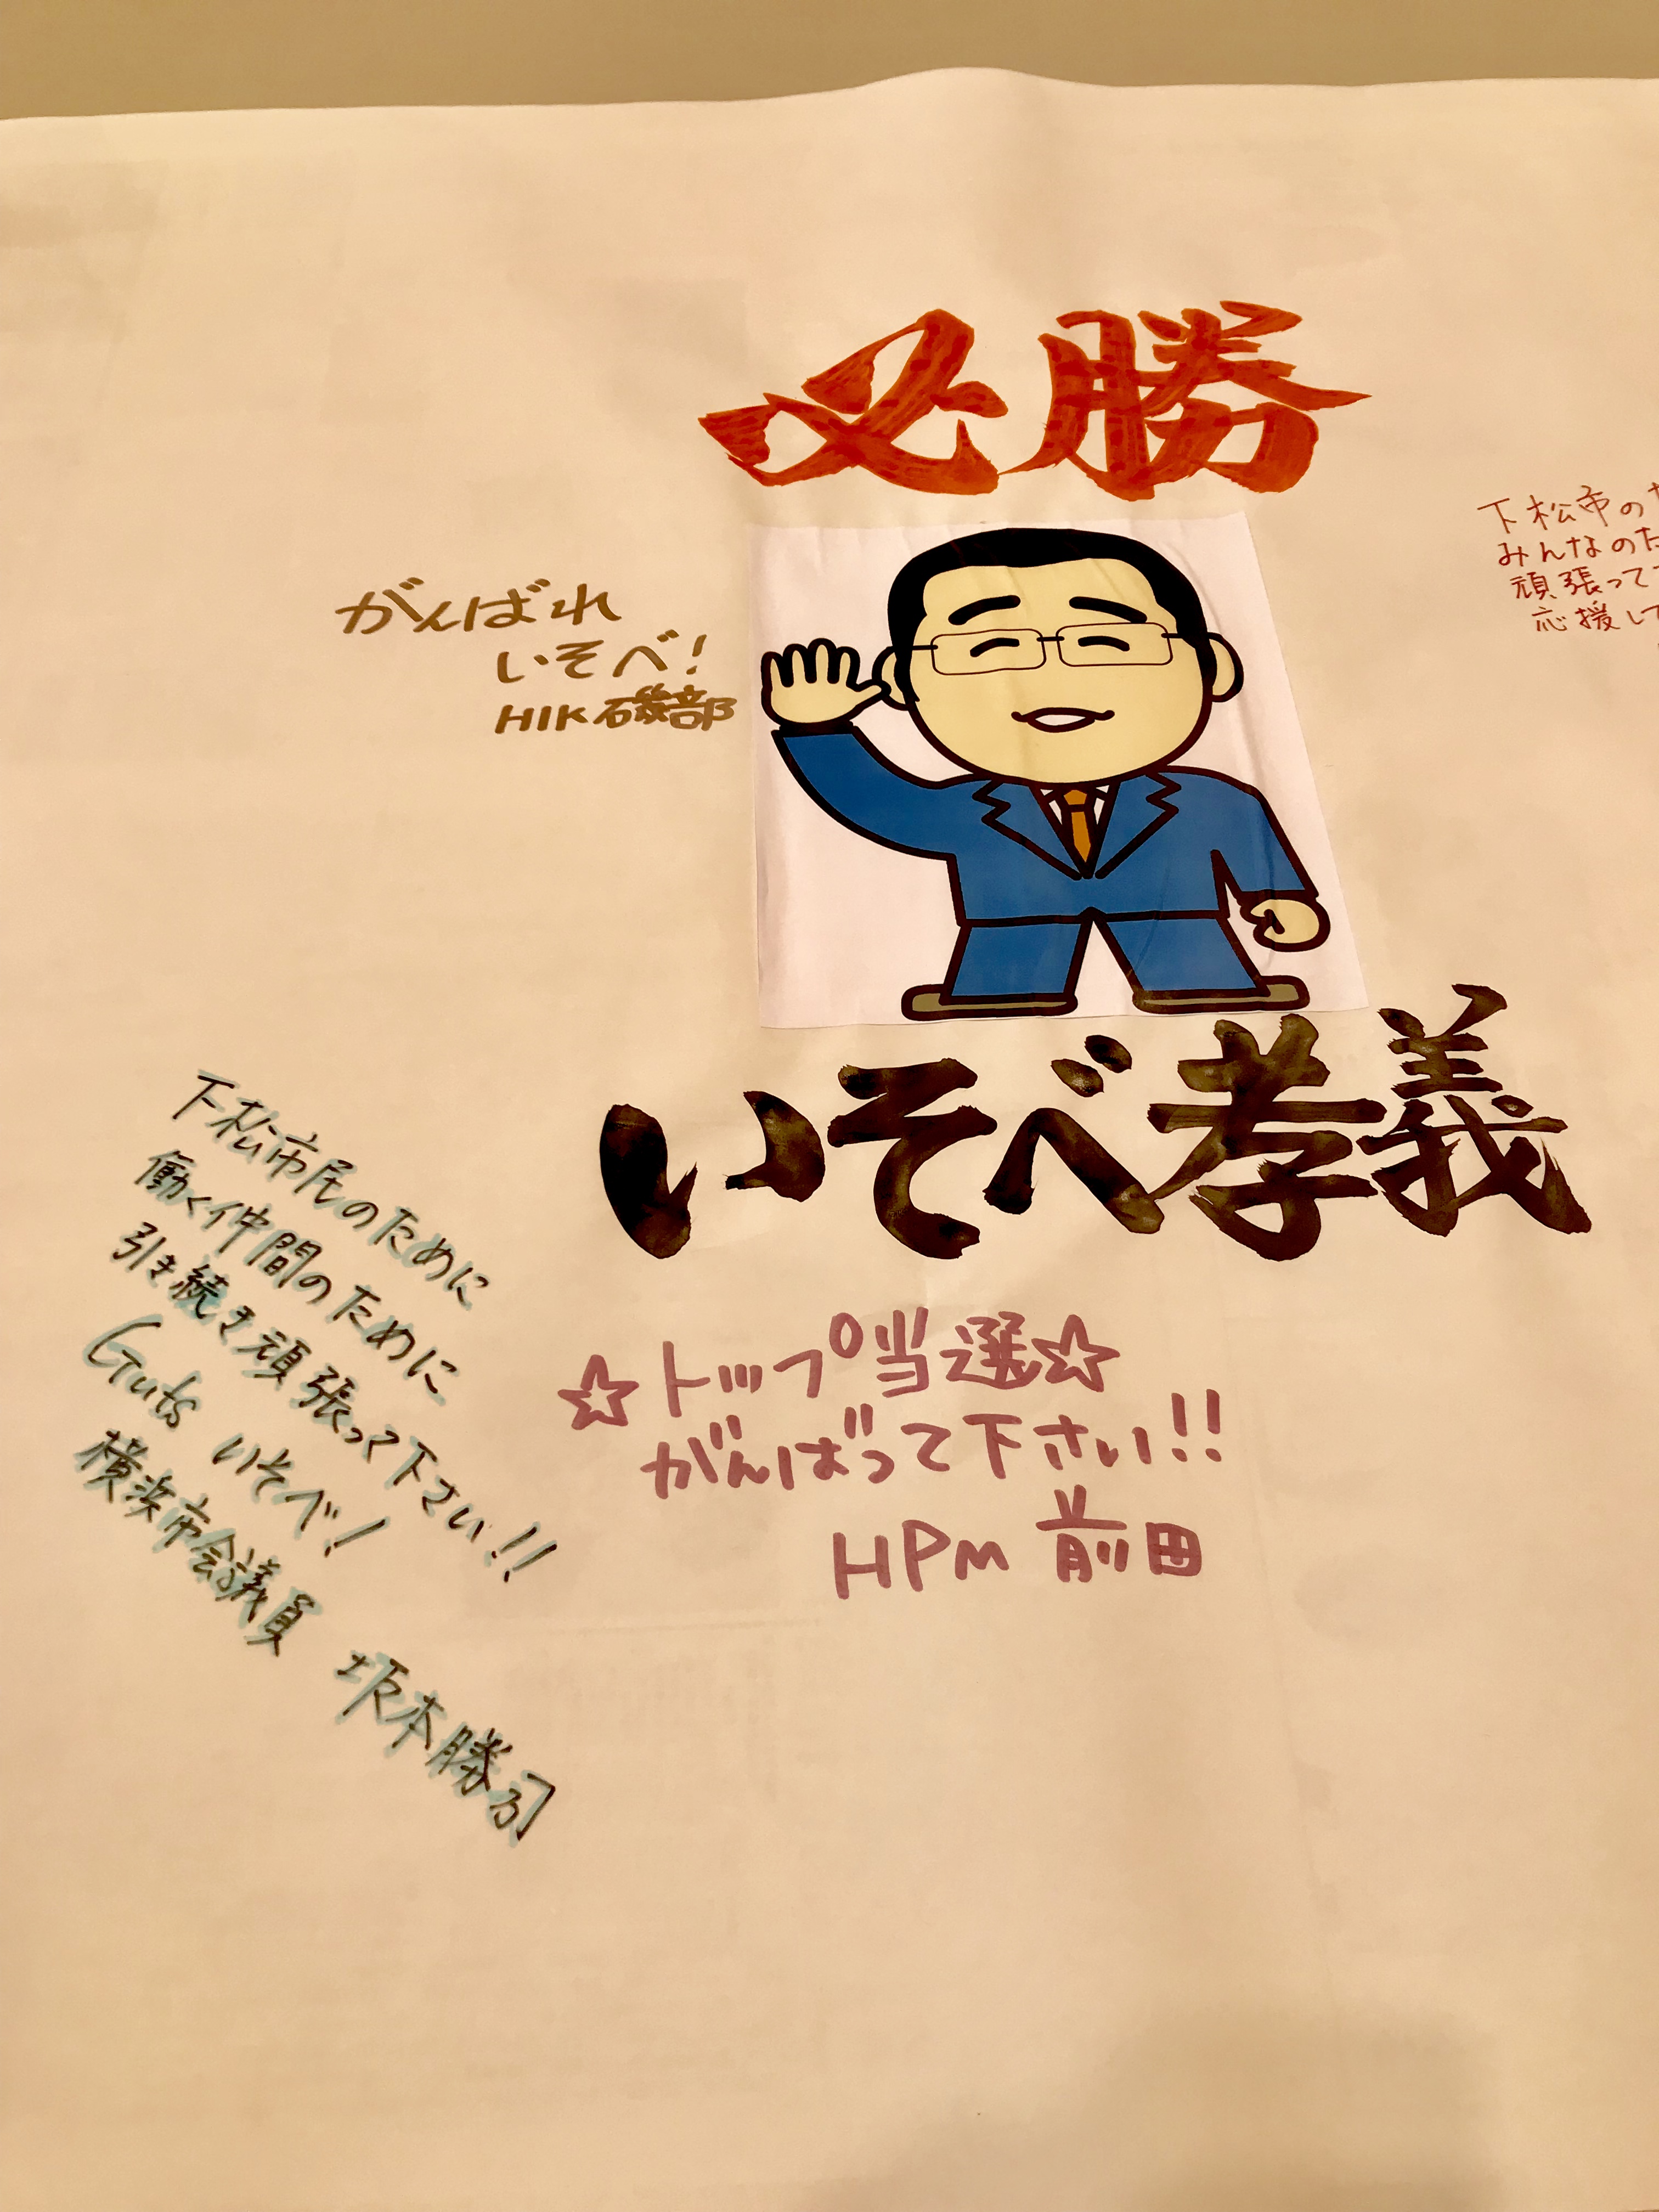 必勝
がんばれ
いそべ!
HIK 磯部
下松市の
みんなの
頑張って
応援し
いそべ孝義
☆トップ当選☆
がんばって下さい!!
HPM 前田
下松市民のために
働く仲間のために
引き続き頑張って下さい!!
Guts いそべ!
横浜市会議員 坂本勝司